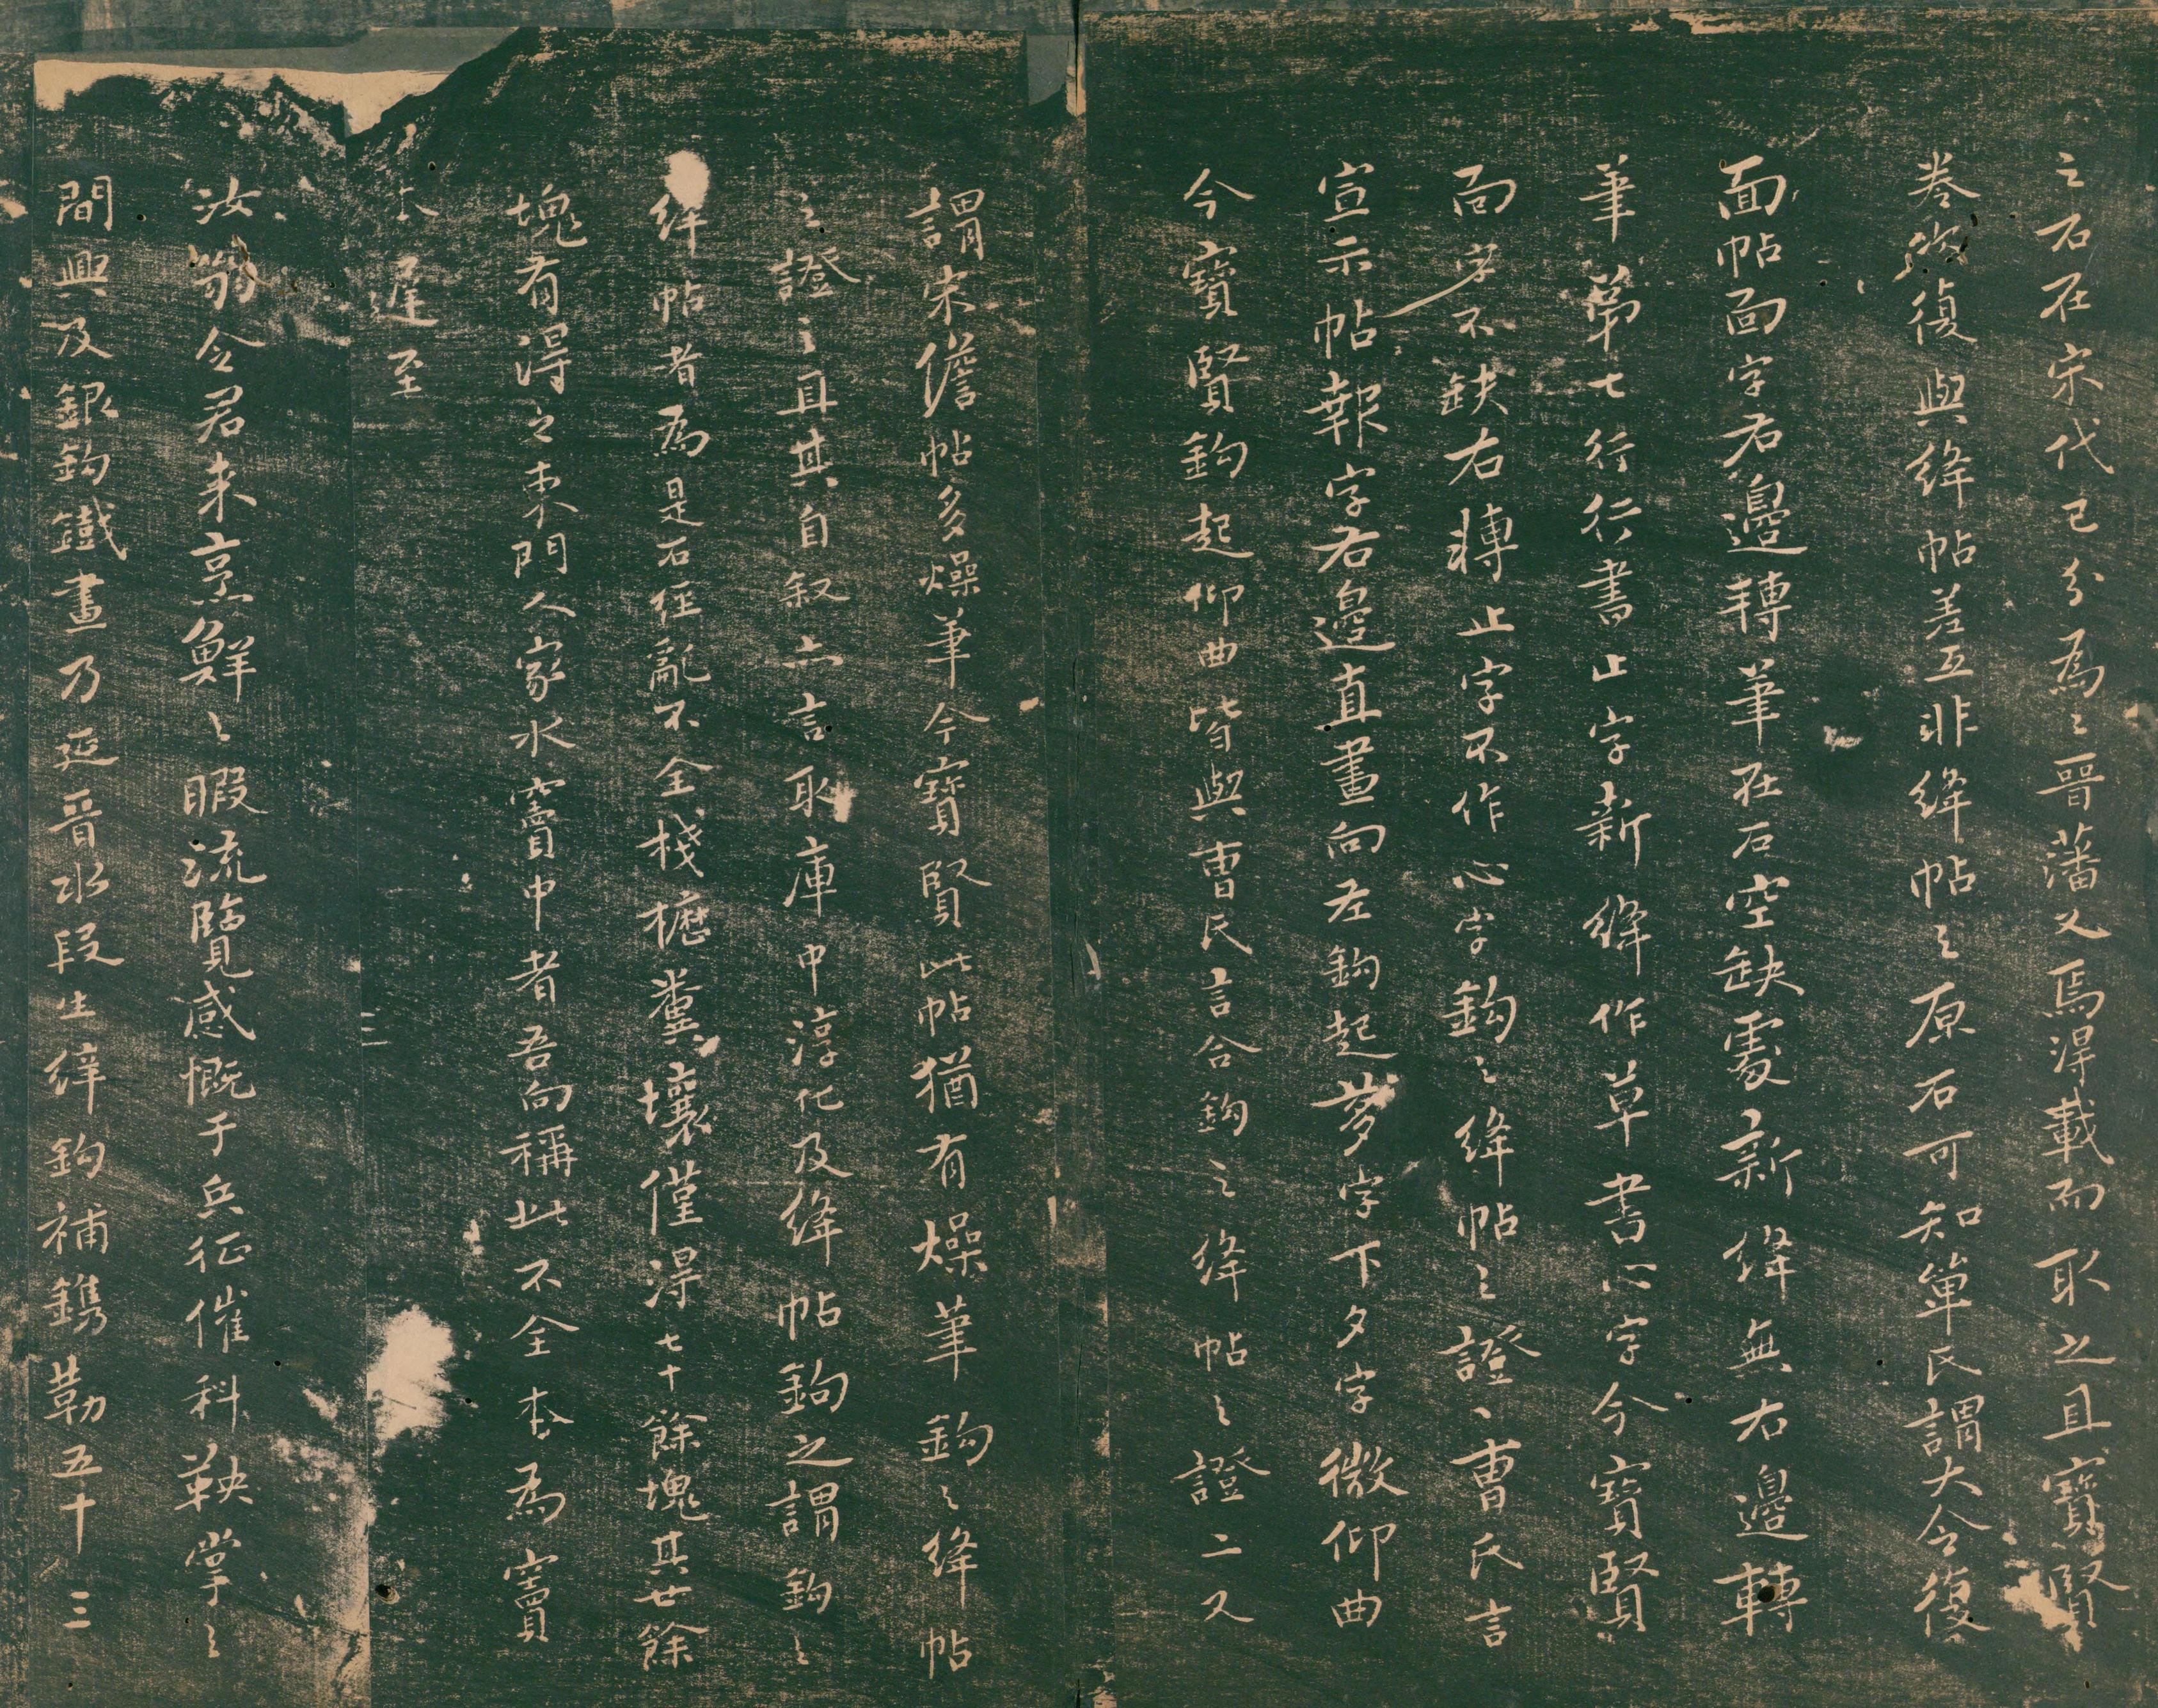 之石在宋代已分為二晉藩又焉得載而取之且寶賢
卷次復與絳帖差互非絳帖之原石可知單氏謂大令復
面帖面字右邊轉筆在石空缺處新絳無右邊轉
筆第七行行書止字新絳作草書心字今寶賢
面字不缺右轉止字不作心字鉤之絳帖之證、曹氏言
宣示帖報字右邊直畫向左鉤起夢字下夕字微仰曲
今寶賢鉤起仰曲皆與曹氏言合鉤之絳帖之證二又
謂宋儋帖多燥筆今寶賢此帖猶有燥筆鉤之絳帖
之證三且其自叙亦言取庫中淳化及絳帖鉤之謂鉤之
絳帖者為是石經亂不全棧櫪糞壤僅得七十餘塊其廿餘
塊有得之東門人家水竇中者吾向稱此不全本為竇
本遲至
汝翁令君来烹鮮之暇流覽感慨于兵征催科鞅掌之
間興及銀鉤鐵畫乃延晉水段生緈鉤補鐫勒五十三